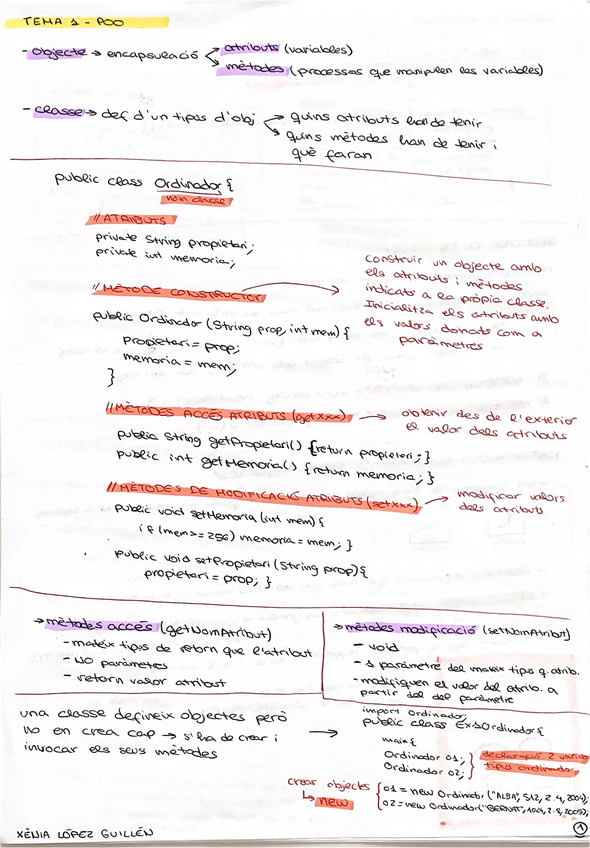 TEMA 1 - POO
- objecte → encapsulació
atributs (variables)
mètodes (processos que manipulen les variables)
- classe → def d'un tipus d'obj
quins atributs han de tenir
quins mètodes han de tenir i
què faran
public class Ordinador {
nom classe
// ATRIBUTS
private String propietari;
private int memoria;
// MÈTODE CONSTRUCTOR
construir un objecte amb
els atributs i mètodes
indicats a la pròpia classe.
Inicialitza els atributs amb
els valors donats com a
paràmetres
public Ordinador (String prop, int mem) {
propietari = prop;
memoria = mem;
}
// MÈTODES ACCÉS ATRIBUTS (getXxx) →
obtenir des de l'exterior
el valor dels atributs
public String getPropietari() {return propietari;}
public int getMemoria() {return memoria;}
// MÈTODES DE MODIFICACIÓ ATRIBUTS (setXxx) →
modificar valors
dels atributs
public void setMemoria (int mem) {
if (mem >= 256) memoria = mem; }
public void setPropietari (String prop) {
propietari = prop; }
→ mètodes accés (getNomAtribut)
- mateix tipus de retorn que l'atribut
- NO paràmetres
- retorn valor atribut
→ mètodes modificació (setNomAtribut)
- void
- 1 paràmetre del mateix tipus q. atrib.
- modifiquen el valor del atrib. a
partir del del paràmetre
una classe defineix objectes però
no en crea cap → s'ha de crear i
invocar els seus mètodes
→
import Ordinador;
public class Ex1Ordinador {
main {
Ordinador o1;
Ordinador o2;
declaració 2 variab
tipus ordinador
crear objectes
↳ new
o1 = new Ordinador ("ALBA", 512, 2.4, 2004);
o2 = new Ordinador ("BERNAT", 1024, 2.8, 2005);
XÈNIA LÓPEZ GUILLÉN
1